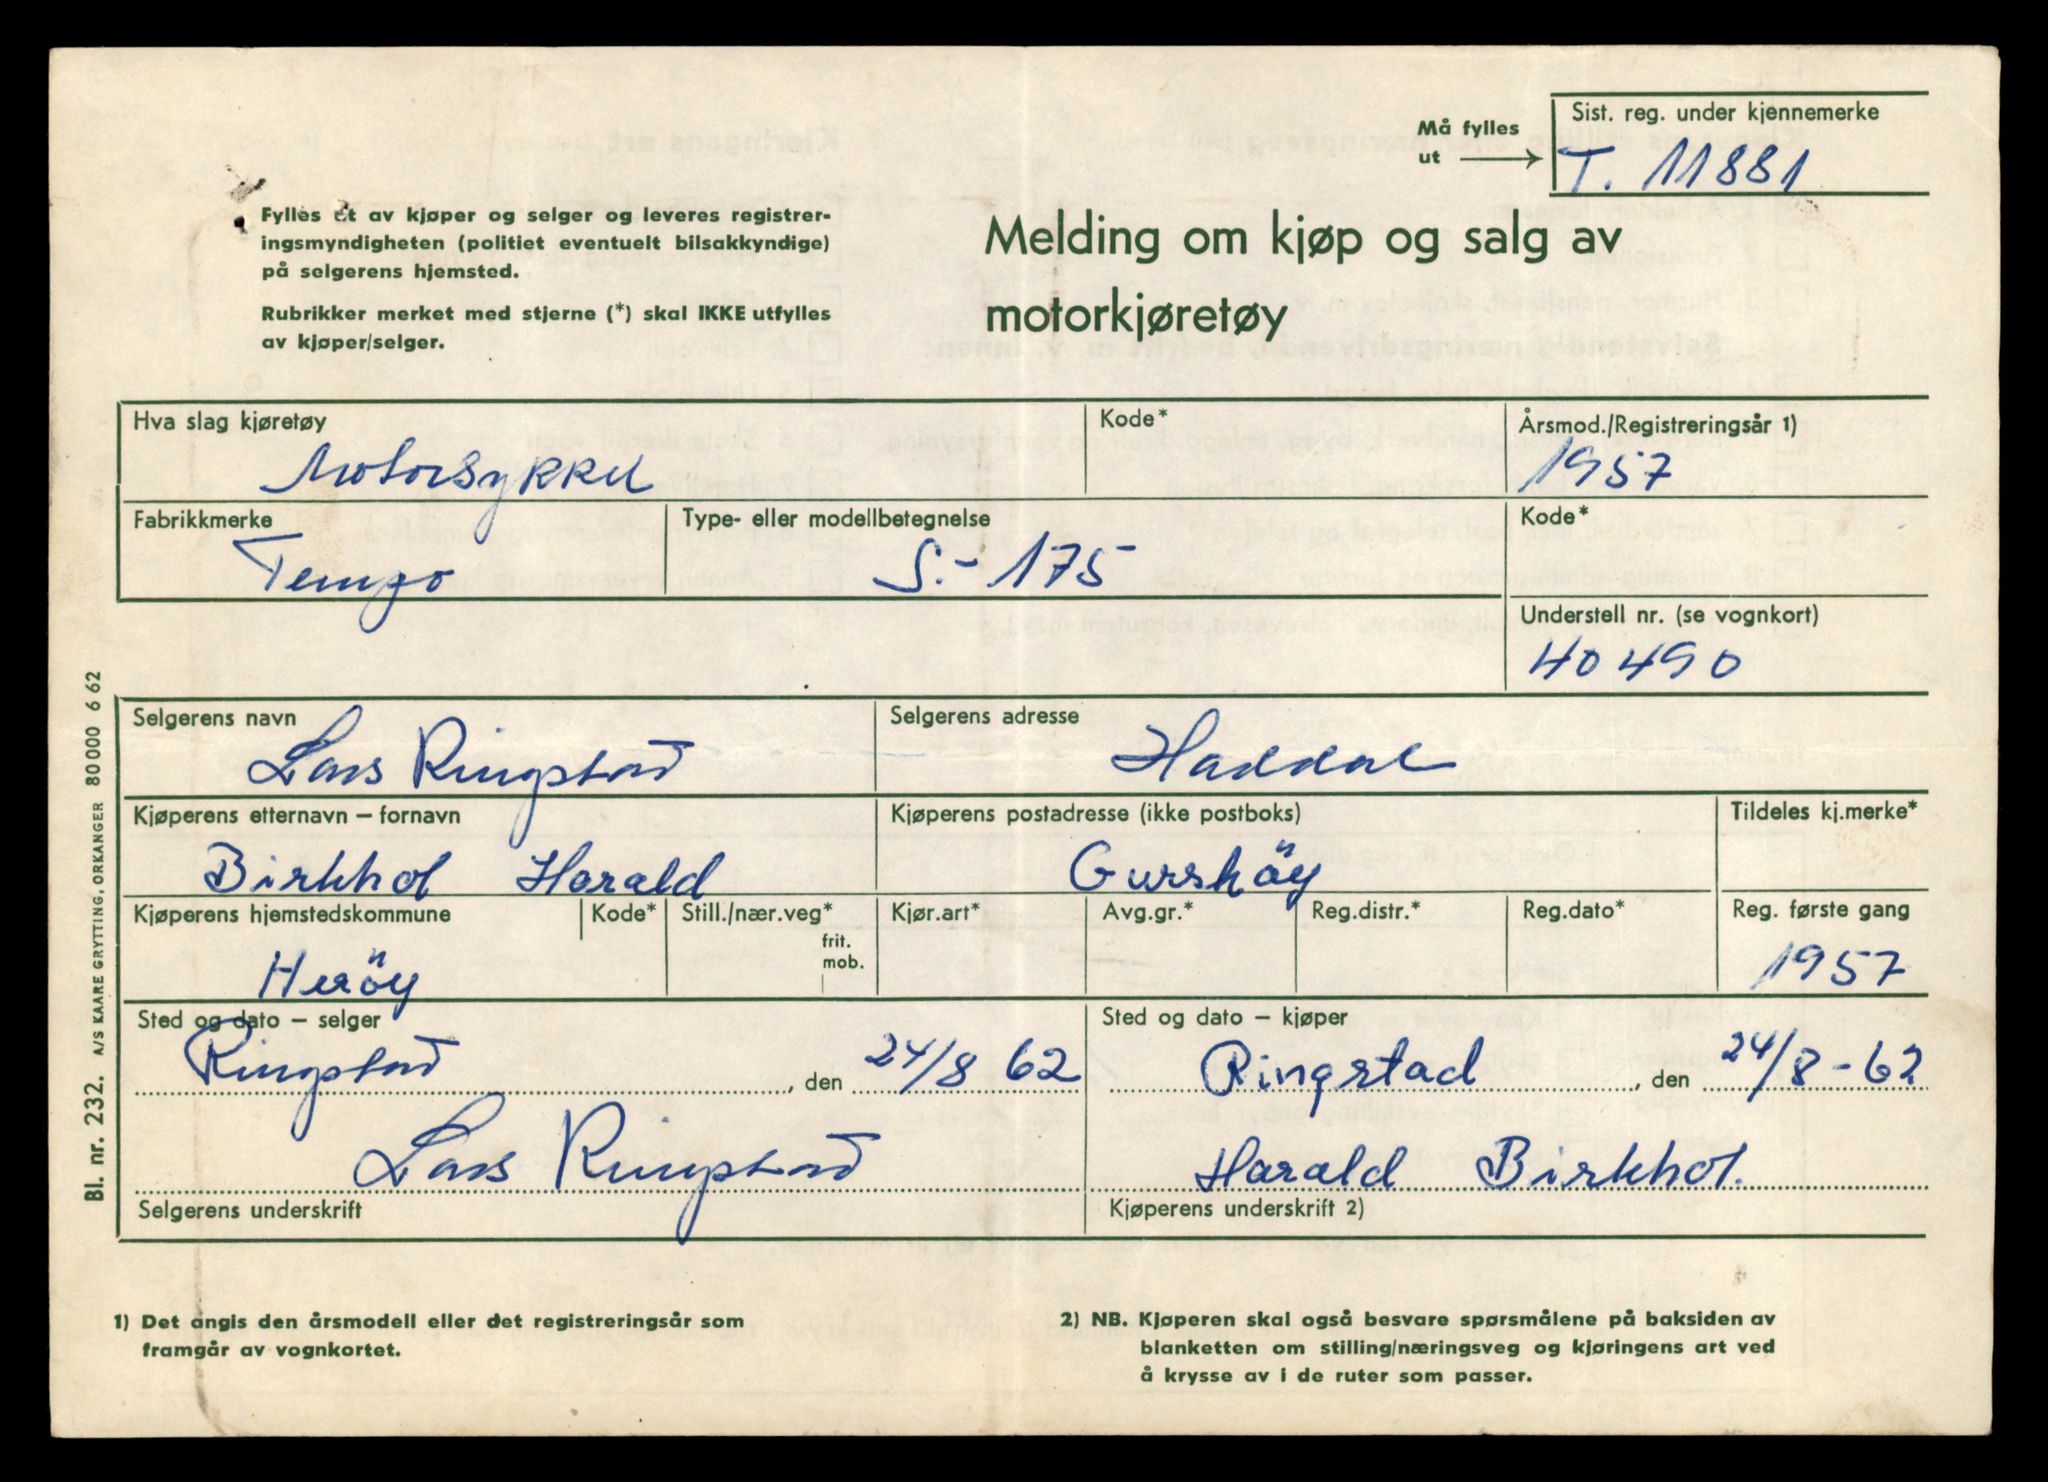 Må fylles
ut
Sist. reg. under kjennemerke
T. 11881
Fylles ut av kjøper og selger og leveres registrer-
ingsmyndigheten (politiet eventuelt bilsakkyndige)
på selgerens hjemsted.
Rubrikker merket med stjerne (*) skal IKKE utfylles
av kjøper/selger.
Melding om kjøp og salg av
motorkjøretøy
Hva slag kjøretøy
Motorsykkel
Kode*
Årsmod./Registreringsår 1)
1957
Fabrikkmerke
Tempo
Type- eller modellbetegnelse
S.- 175
Kode*
Understell nr. (se vognkort)
40490
Selgerens navn
Lars Ringstad
Selgerens adresse
Haddal
Kjøperens etternavn – fornavn
Birkhol Harald
Kjøperens postadresse (ikke postboks)
Gursköy
Tildeles kj.merke*
Kjøperens hjemstedskommune
Heröy
Kode*
Still./nær.veg*
frit.
mob.
Kjør.art*
Avg.gr.*
Reg.distr.*
Reg.dato*
Reg. første gang
1957
Sted og dato – selger
Ringstad, den 24/8 62
Sted og dato – kjøper
Ringstad, den 24/8-62
Lars Ringstad
Selgerens underskrift
Harald Birkhol.
Kjøperens underskrift 2)
1) Det angis den årsmodell eller det registreringsår som
framgår av vognkortet.
2) NB. Kjøperen skal også besvare spørsmålene på baksiden av
blanketten om stilling/næringsveg og kjøringens art ved
å krysse av i de ruter som passer.
Bl. nr. 232. A/S KAARE GRYTTING, ORKANGER 80000 6 62